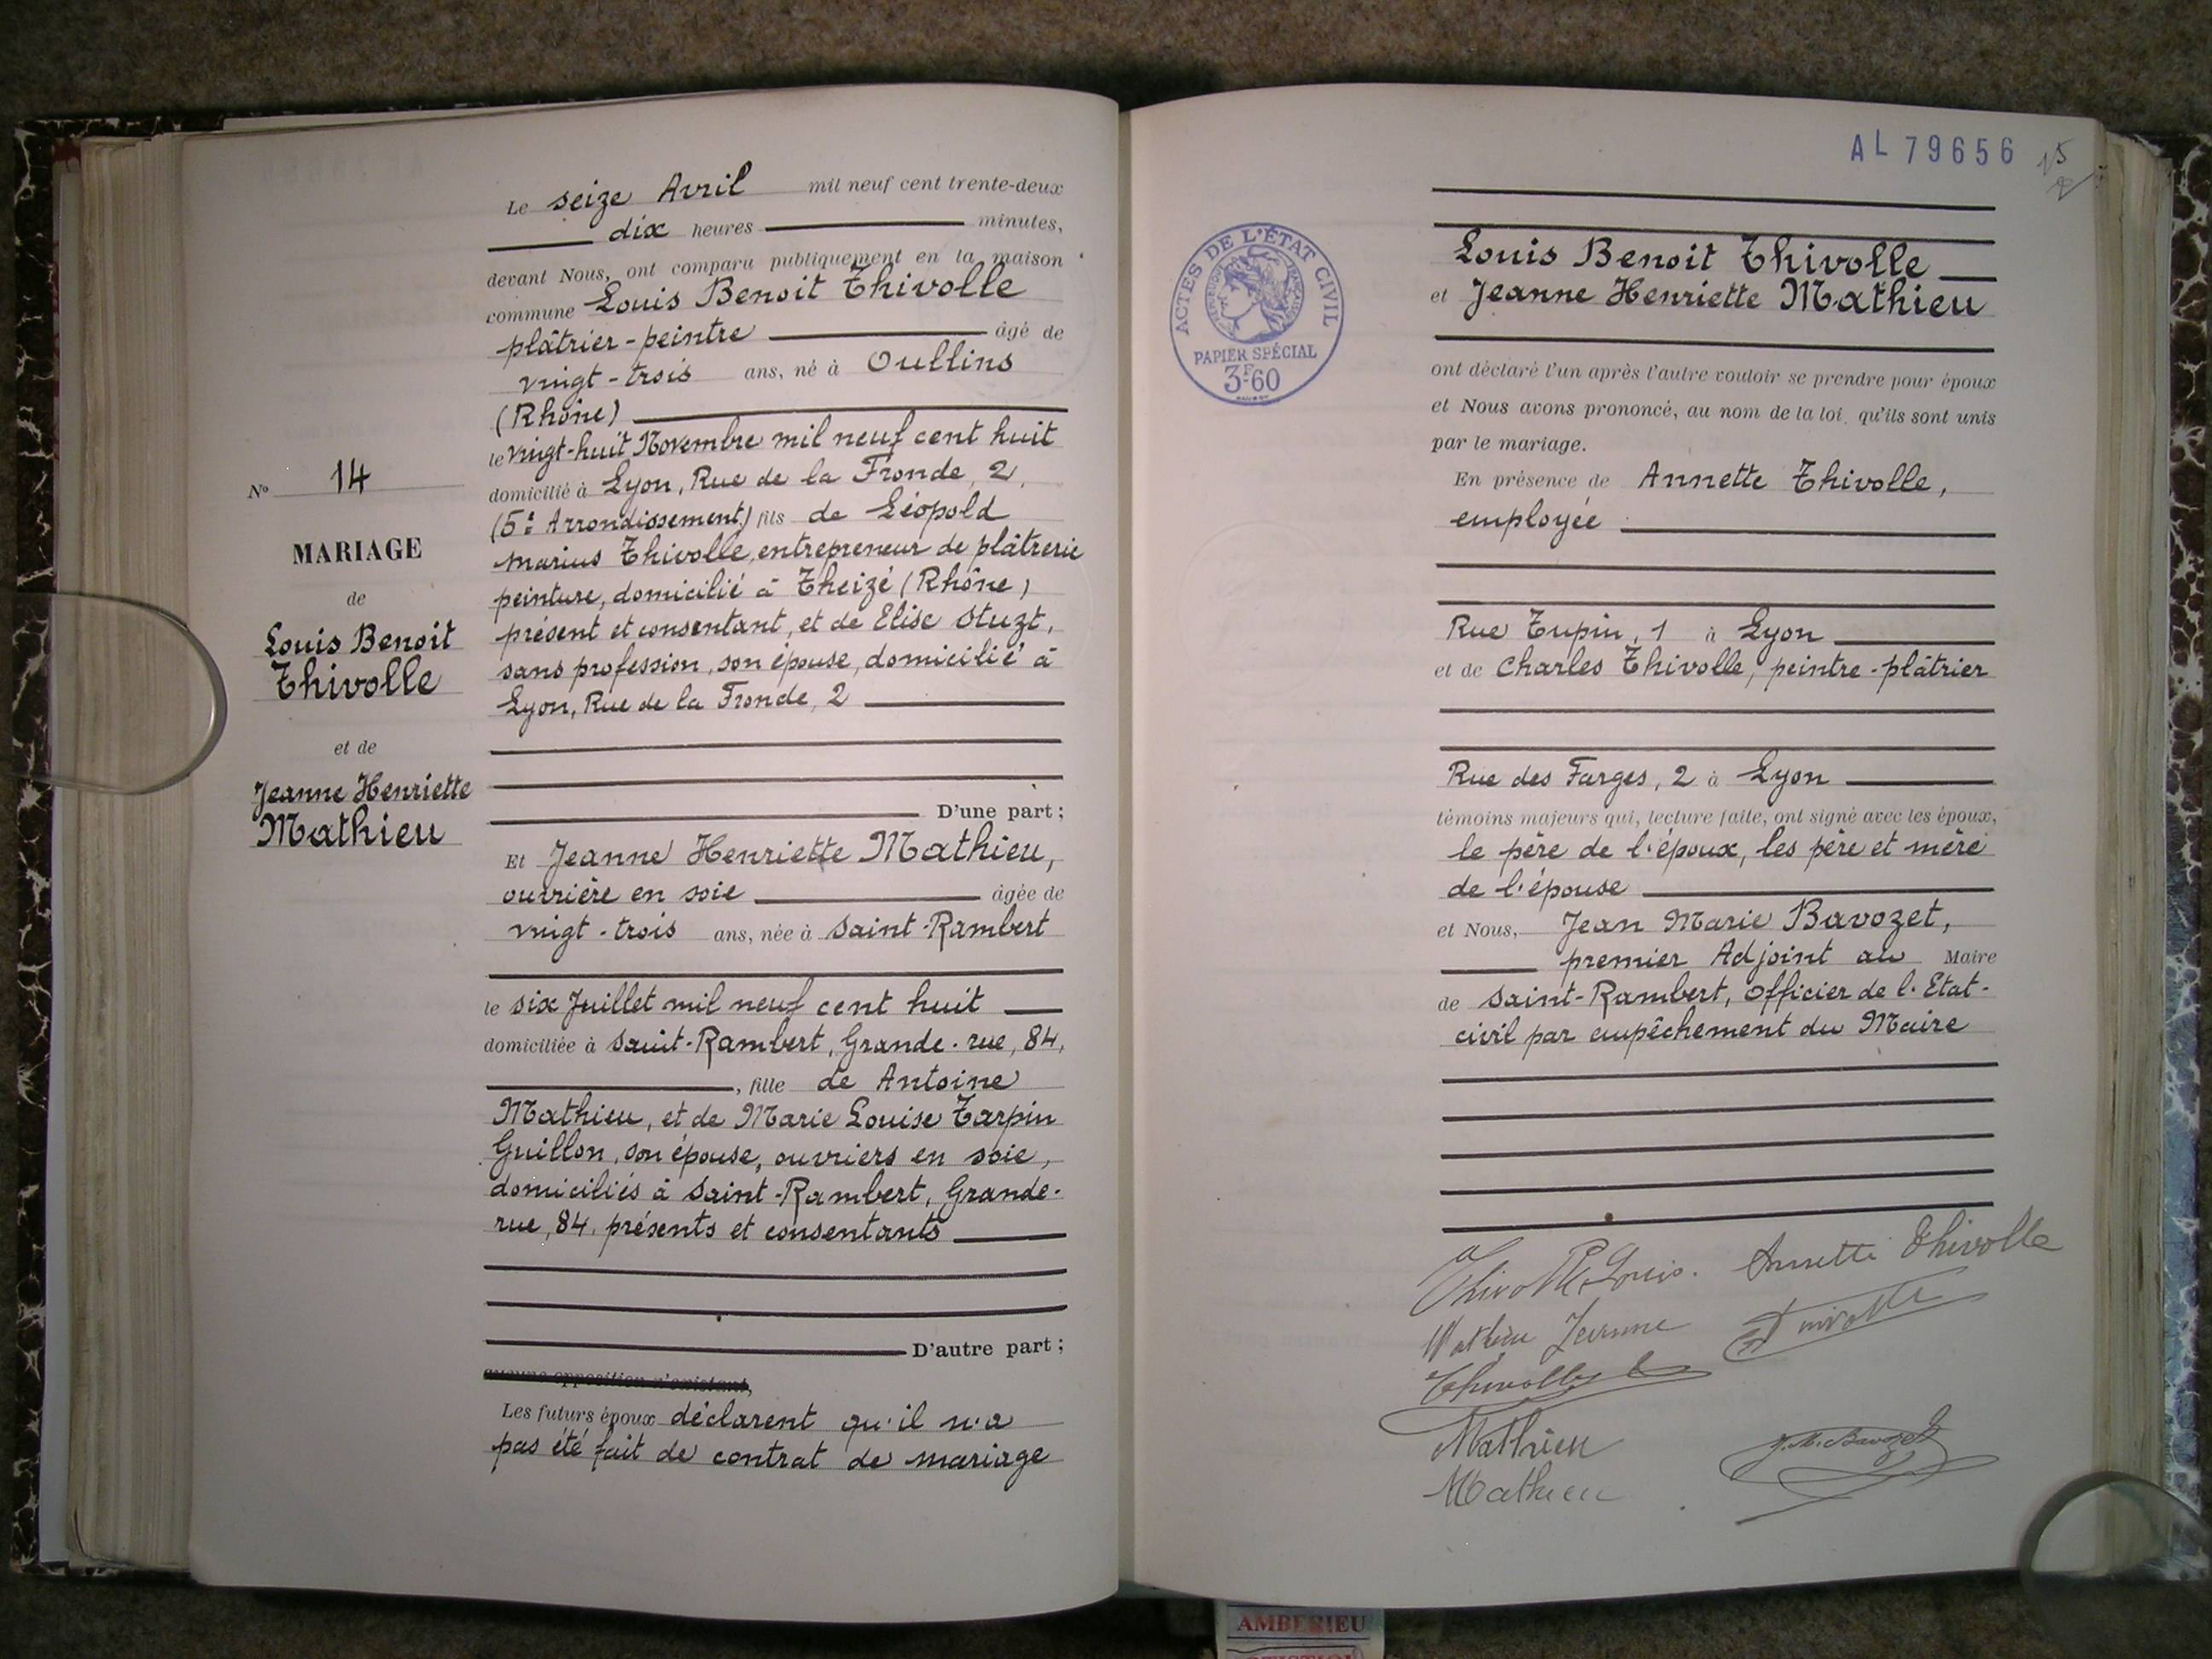 Le seize Avril mil neuf cent trente-deux
dix heures minutes,
devant Nous, ont comparu publiquement en la maison
commune Louis Benoit Thivolle
plâtrier-peintre âgé de
vingt-trois ans, né à Oullins
(Rhône)
le vingt-huit Novembre mil neuf cent huit
domicilié à Lyon, Rue de la Fronde, 2,
(5e Arrondissement) fils de Léopold
Marius Thivolle, entrepreneur de plâtrerie
peinture, domicilié à Theizé (Rhône)
présent et consentant, et de Elise Stuzt,
sans profession, son épouse, domicilié à
Lyon, Rue de la Fronde, 2
D'une part;
Et Jeanne Henriette Mathieu,
ouvrière en soie âgée de
vingt-trois ans, née à Saint-Rambert
le six Juillet mil neuf cent huit
domiciliée à Saint-Rambert, Grande-rue, 84,
, fille de Antoine
Mathieu, et de Marie Louise Tarpin
Guillon, son épouse, ouvriers en soie,
domiciliés à Saint-Rambert, Grande-
rue, 84, présents et consentants
D'autre part;
aucune opposition n'existant,
Les futurs époux déclarent qu'il n'a
pas été fait de contrat de mariage
No 14
MARIAGE
de
Louis Benoit
Thivolle
et de
Jeanne Henriette
Mathieu
AL 79656
15
ACTES DE L'ÉTAT CIVIL
RÉPUBLIQUE FRANÇAISE
PAPIER SPÉCIAL
3F60
Louis Benoit Thivolle
et Jeanne Henriette Mathieu
ont déclaré l'un après l'autre vouloir se prendre pour époux
et Nous avons prononcé, au nom de la loi, qu'ils sont unis
par le mariage.
En présence de Annette Thivolle,
employée
Rue Tupin, 1 à Lyon
et de Charles Thivolle, peintre-plâtrier
Rue des Farges, 2 à Lyon
témoins majeurs qui, lecture faite, ont signé avec les époux,
le père de l'époux, les père et mère
de l'épouse
et Nous, Jean Marie Bavozet,
premier Adjoint au Maire
de Saint-Rambert, Officier de l'Etat-
civil par empêchement du Maire
Thivolle Louis. Annette Thivolle
Mathieu Jeanne Thivolle
Thivolle
Mathieu
J.M. Bavozet
Mathieu
AMBERIEU